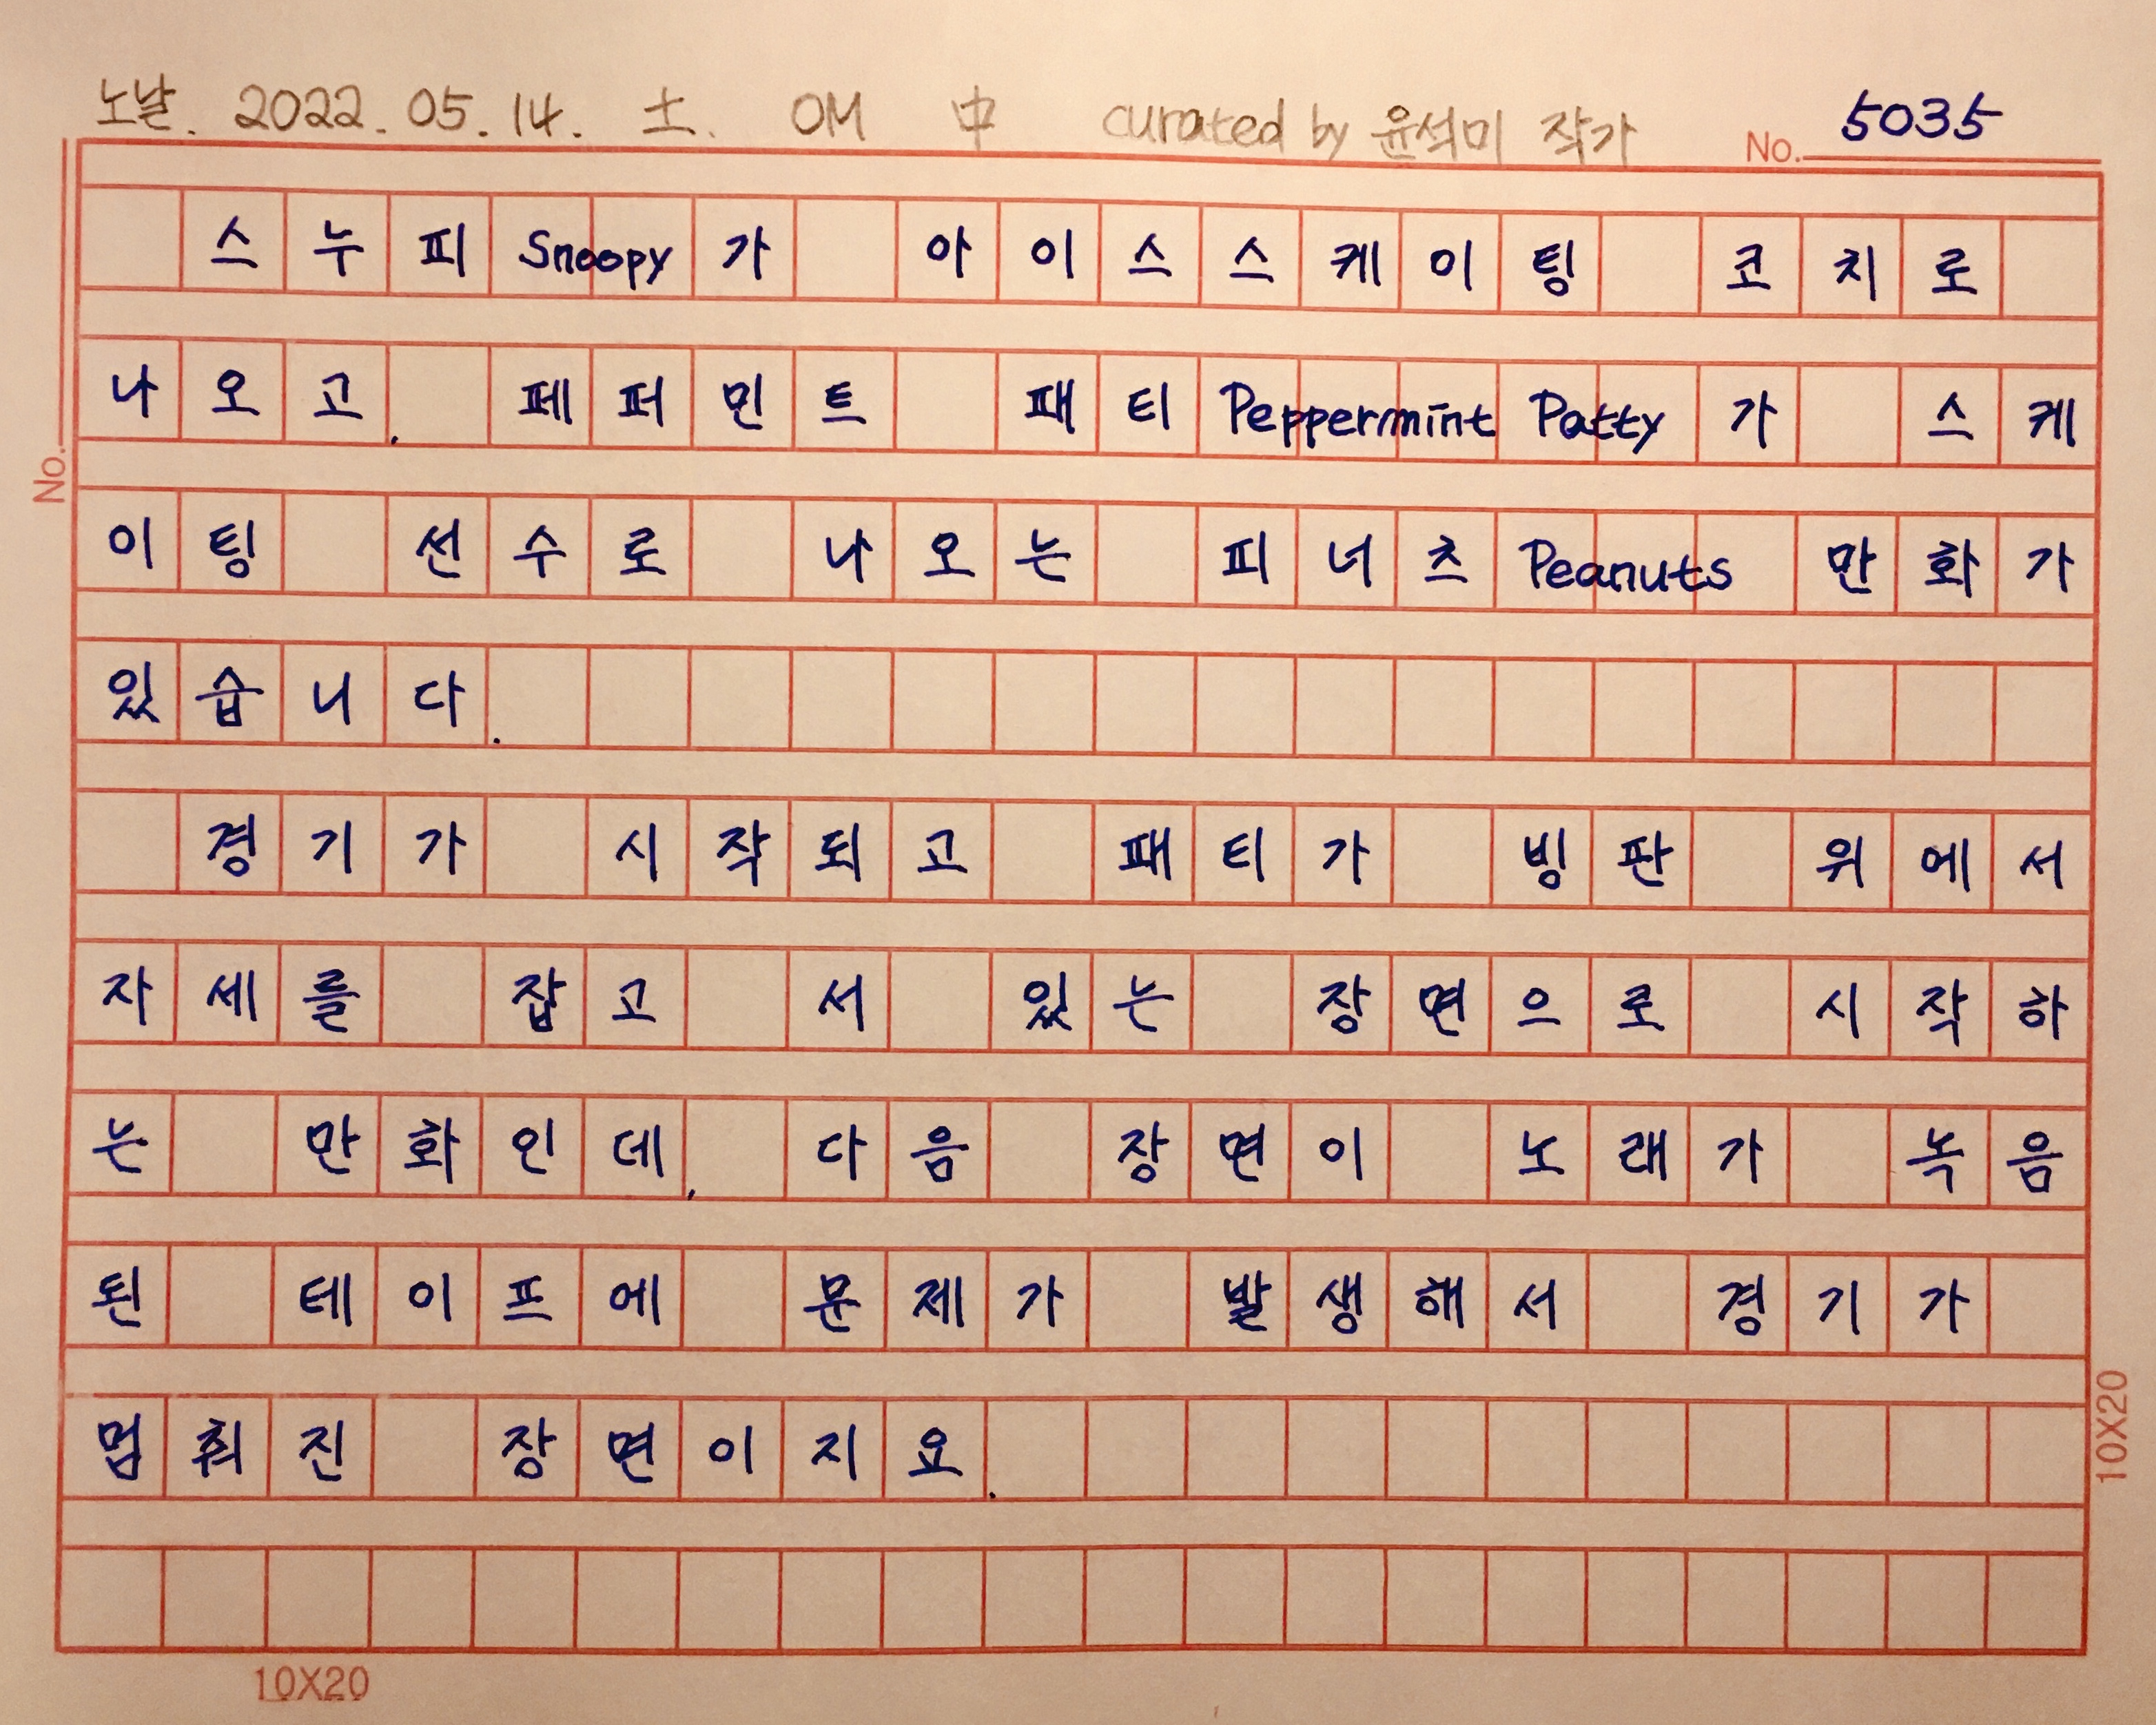 노날. 2022. 05. 14. 土. OM 中 curated by 윤석미 작가 No. 5035
스누피 Snoopy가 아이스스케이팅 코치로
나오고, 페퍼민트 패티 Peppermint Patty가 스케
이팅 선수로 나오는 피너츠 Peanuts 만화가
있습니다.
경기가 시작되고 패티가 빙판 위에서
자세를 잡고 서 있는 장면으로 시작하
는 만화인데, 다음 장면이 노래가 녹음
된 테이프에 문제가 발생해서 경기가
멈춰진 장면이지요.
No.
10X20
10X20